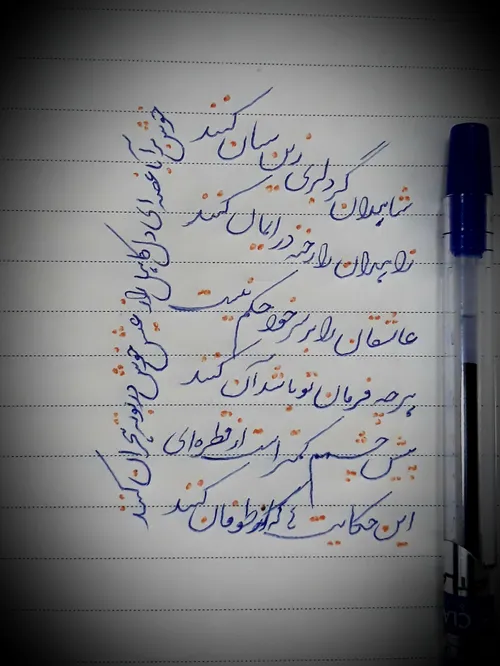 شاهدان گر دلبری زین سان کنند
زاهدان را رخنه در ایمان کنند
عاشقان را بر سر خود حکم نیست
هرچه فرمان تو باشد آن کنند
پیش چشمم کمتر است از قطره‌ای
این حکایت که از طوفان کنند
خوش برآ با غصه ای دل کاهل راز
عیش خوش در بوته هجران کنند